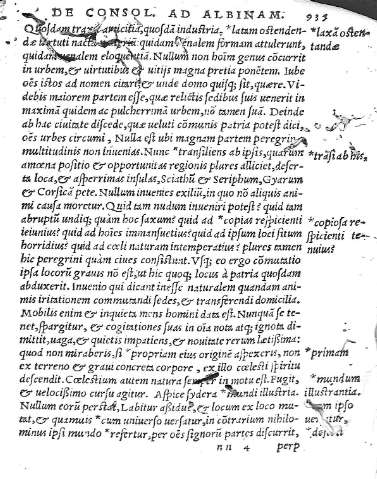 DE CONSOL. AD ALBINAM. 935
Quosdam traxit amicitia, quosdā industria, *latam ostenden-
dæ uirtuti nacta magnā quidam uenalem formam attulerunt,
quidam uenalem eloquentiā. Nullum non hoīm genus cōcurrit
in urbem, & uirtutibus & uitijs magna pretia ponētem. Iube
oēs istos ad nomen citari, & unde domo quisq; sit, quære. Vi-
debis maiorem partem esse, quæ relictis sedibus suis uenerit in
maximā quidem ac pulcherrimā urbem, nō tamen suā. Deinde
ab hac ciuitate discede, quæ ueluti cōmunis patria potest dici,
oēs urbes circumi, Nulla est ubi magnam partem peregrinæ
multitudinis non inuenies. Nunc *transiliens ab ipsis, quarum
amœna positio & opportunitas regionis plures alliciet, deser-
ta loca, & asperrimas insulas, Sciathū & Seriphum, Gyarum
& Corsicā pete. Nullum inuenies exiliū, in quo nō aliquis ani-
mi causa moretur. Quid tam nudum inueniri potest? quid tam
abruptū undiq; quàm hoc saxum? quid ad *copias respicienti
ieiunius? quid ad hoīes immansuetius? quid ad ipsum loci situm
horridius? quid ad cœli naturam intemperatius? plures tamen
hic peregrini quàm ciues consistunt. Vsq; eo ergo cōmutatio
ipsa locorū grauis nō est, ut hic quoq; locus à patria quosdam
abduxerit. Inuenio qui dicant inesse naturalem quandam ani-
mis iritationem commutandi sedes, & transferendi domicilia.
Mobilis enim & inquieta mens homini data est. Nunquā se te-
net, spargitur, & cogitationes suas in oīa nota atq; ignota di-
mittit, uaga, & quietis impatiens, & nouitate rerum lætissima:
quod non miraberis, si *propriam eius originē aspexeris, non
ex terreno & graui concreta corpore, ex illo cœlesti spiritu
descendit. Cœlestium autem natura semper in motu est. Fugit,
& uelocissimo cursu agitur. Aspice sydera *mundi illustria.
Nullum eorū perstat, Labitur assidue, & locum ex loco mu-
tat, & quamuis *cum uniuerso uersatur, in cōtrarium nihilo-
minus ipsi mundo *refertur, per oēs signorū partes discurrit,
nn 4 perp
*laxā osten-
tandæ
*trāsi ab his,
*copiosa re-
spicienti te-
nuius?
*primam
*mundum
illustrantia.
*cum ipso